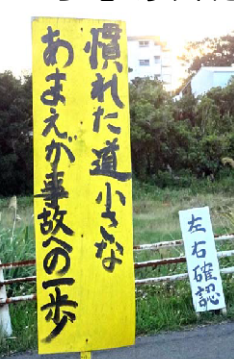 慣れた道小さな
あまえが事故への一歩
左右確認